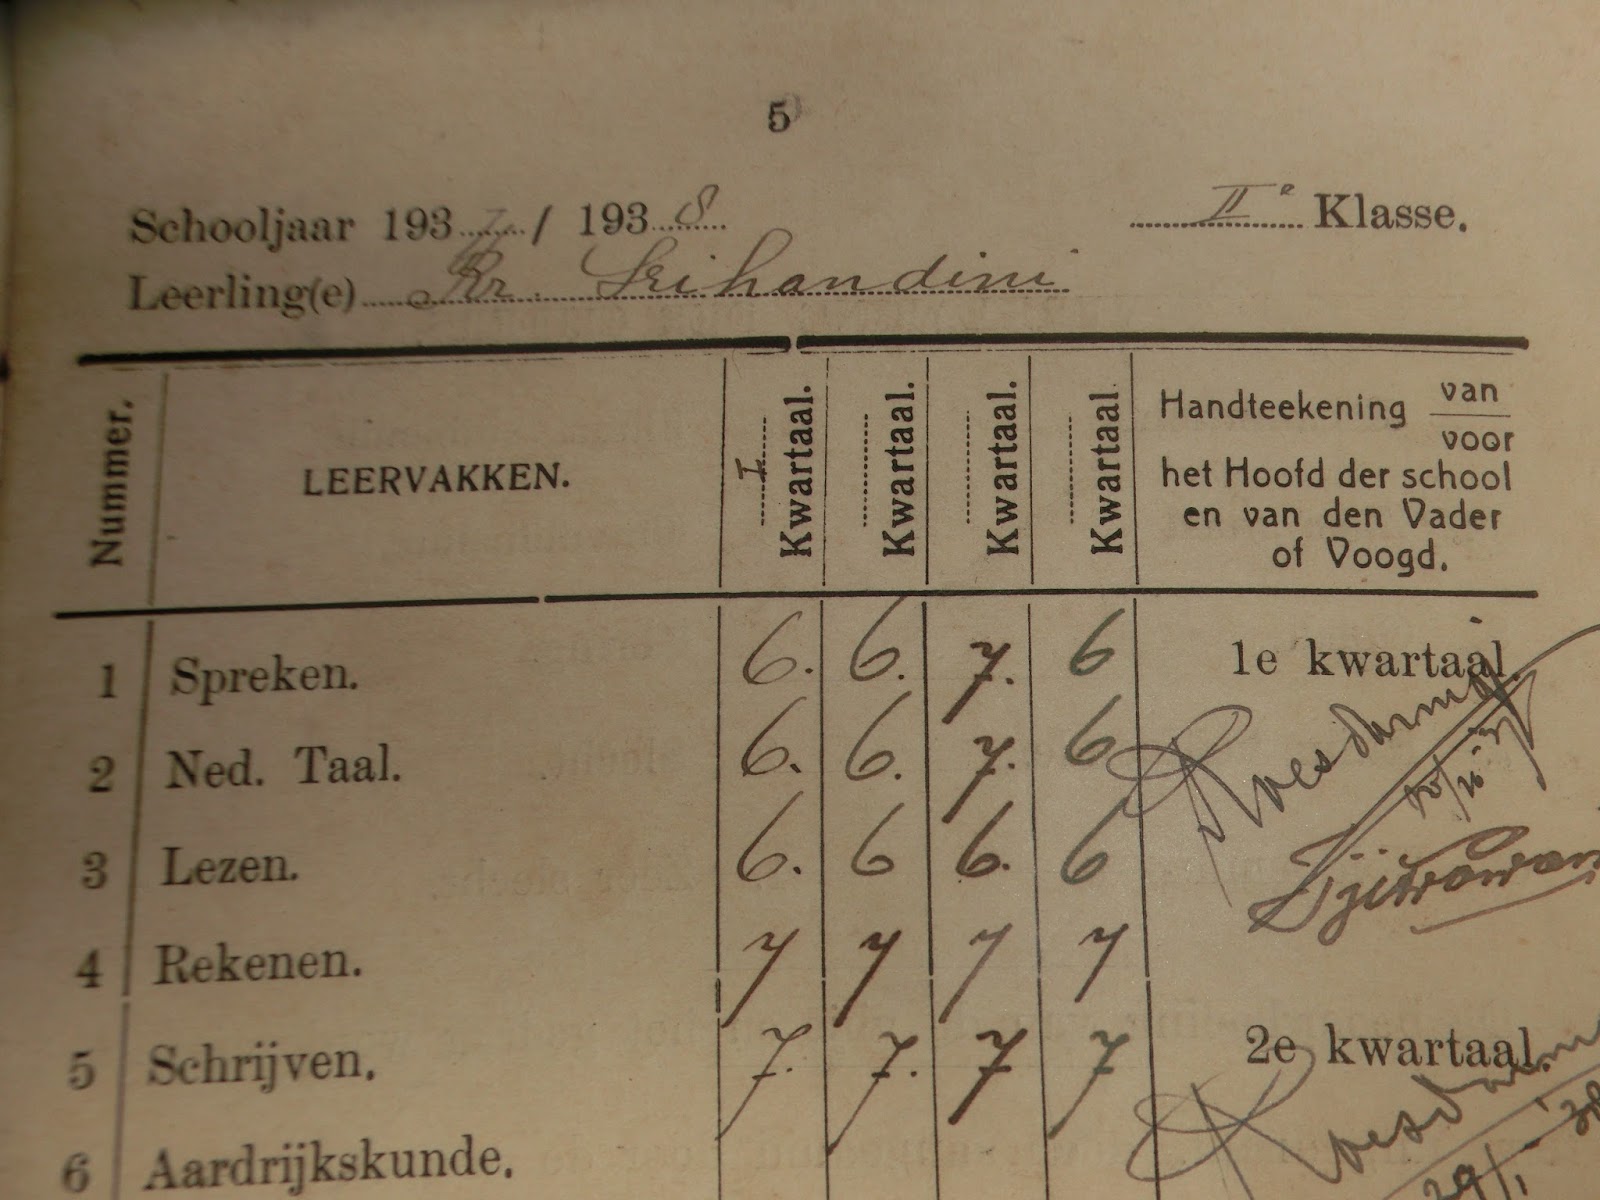 5
Schooljaar 1937/1938 IIe Klasse.
Leerling(e) Rr. Srihandini
Nummer. LEERVAKKEN. I Kwartaal. Kwartaal. Kwartaal. Kwartaal Handteekening van
voor
het Hoofd der school
en van den Vader
of Voogd.
1 Spreken. 6. 6. 7. 6 1e kwartaal.
2 Ned. Taal. 6. 6. 7. 6
Roesdarmo
3 Lezen. 6. 6 6. 6
4 Rekenen. 7 7 7 7
5 Schrijven. 7. 7. 7 7 2e kwartaal.
6 Aardrijkskunde.
29/1-38